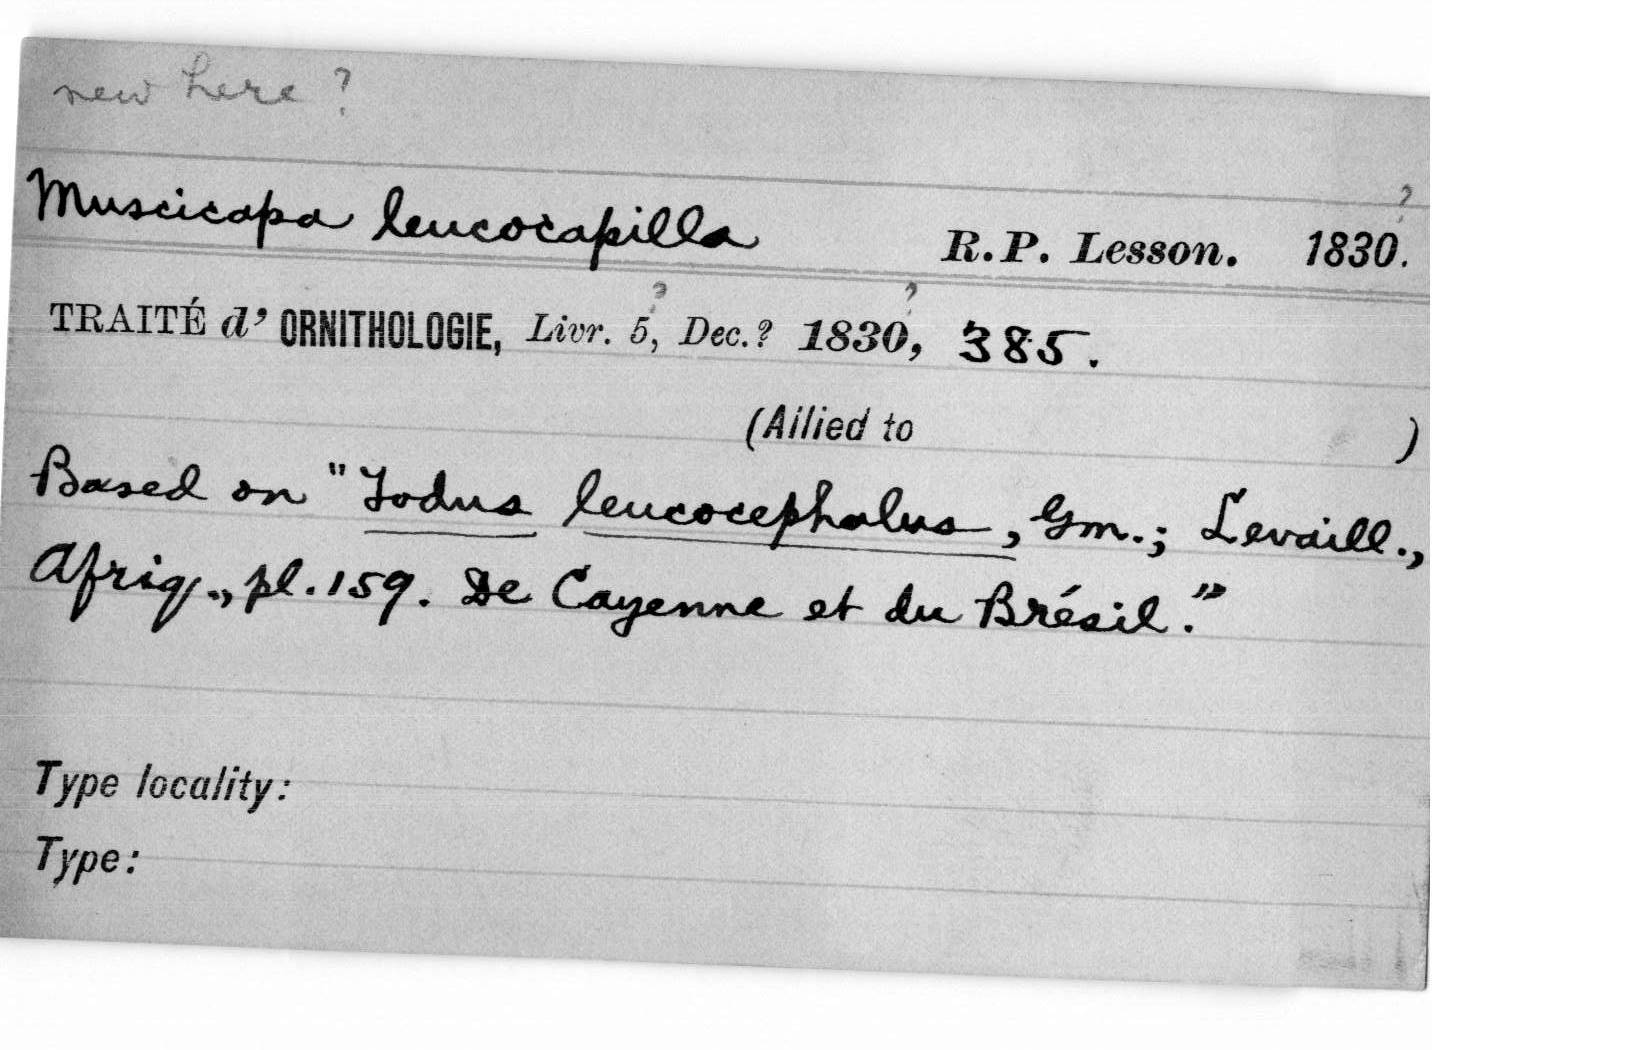 new here ?
Muscicapa leucocapilla R.P. Lesson. 1830?.
TRAITÉ d' ORNITHOLOGIE, Livr. 5?, Dec.? 1830?, 385.
(Allied to )
Based on "Todus leucocephalus, Gm.; Levaill.,
Afriq., pl. 159. De Cayenne et du Brésil."
Type locality:
Type: